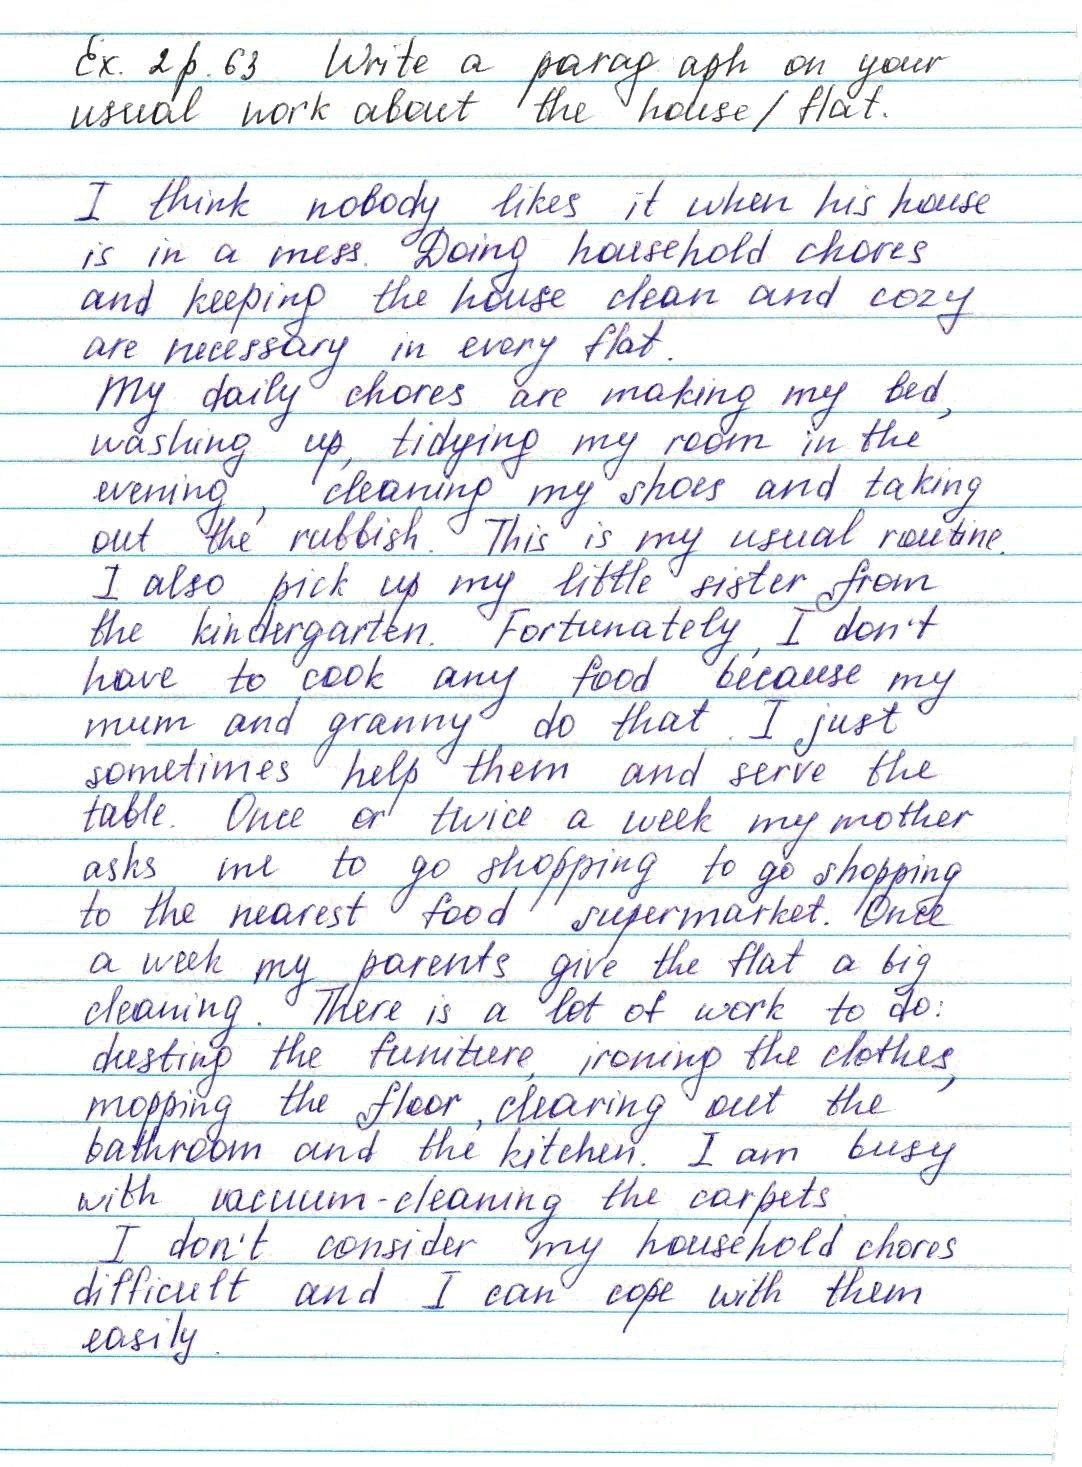 Ex. 2 p. 63 Write a parag aph on your
usual work about the house/flat.
I think nobody likes it when his house
is in a mess. Doing household chores
and keeping the house clean and cozy
are necessary in every flat.
My daily chores are making my bed,
washing up, tidying my room in the
evening, cleaning my shoes and taking
out the rubbish. This is my usual routine.
I also pick up my little sister from
the kindergarten. Fortunately, I don't
have to cook any food because my
mum and granny do that. I just
sometimes help them and serve the
table. Once or twice a week my mother
asks me to go shopping to go shopping
to the nearest food supermarket. Once
a week my parents give the flat a big
cleaning. There is a lot of work to do:
dusting the funiture, ironing the clothes,
mopping the floor, clearing out the
bathroom and the kitchen. I am busy
with vacuum-cleaning the carpets.
I don't consider my household chores
difficult and I can cope with them
easily.